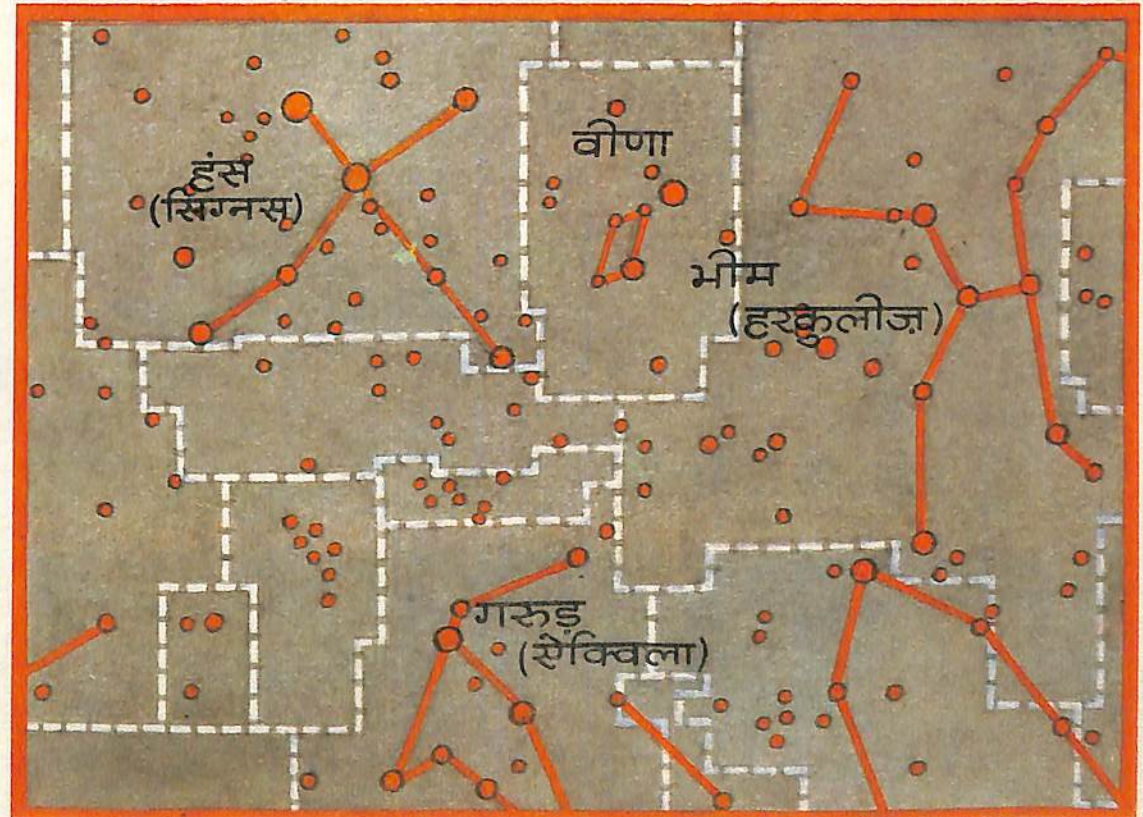 हंस
(सिग्नस)
वीणा
भीम
(हरकुलीज़)
गरुड़
(सॅक्विला)